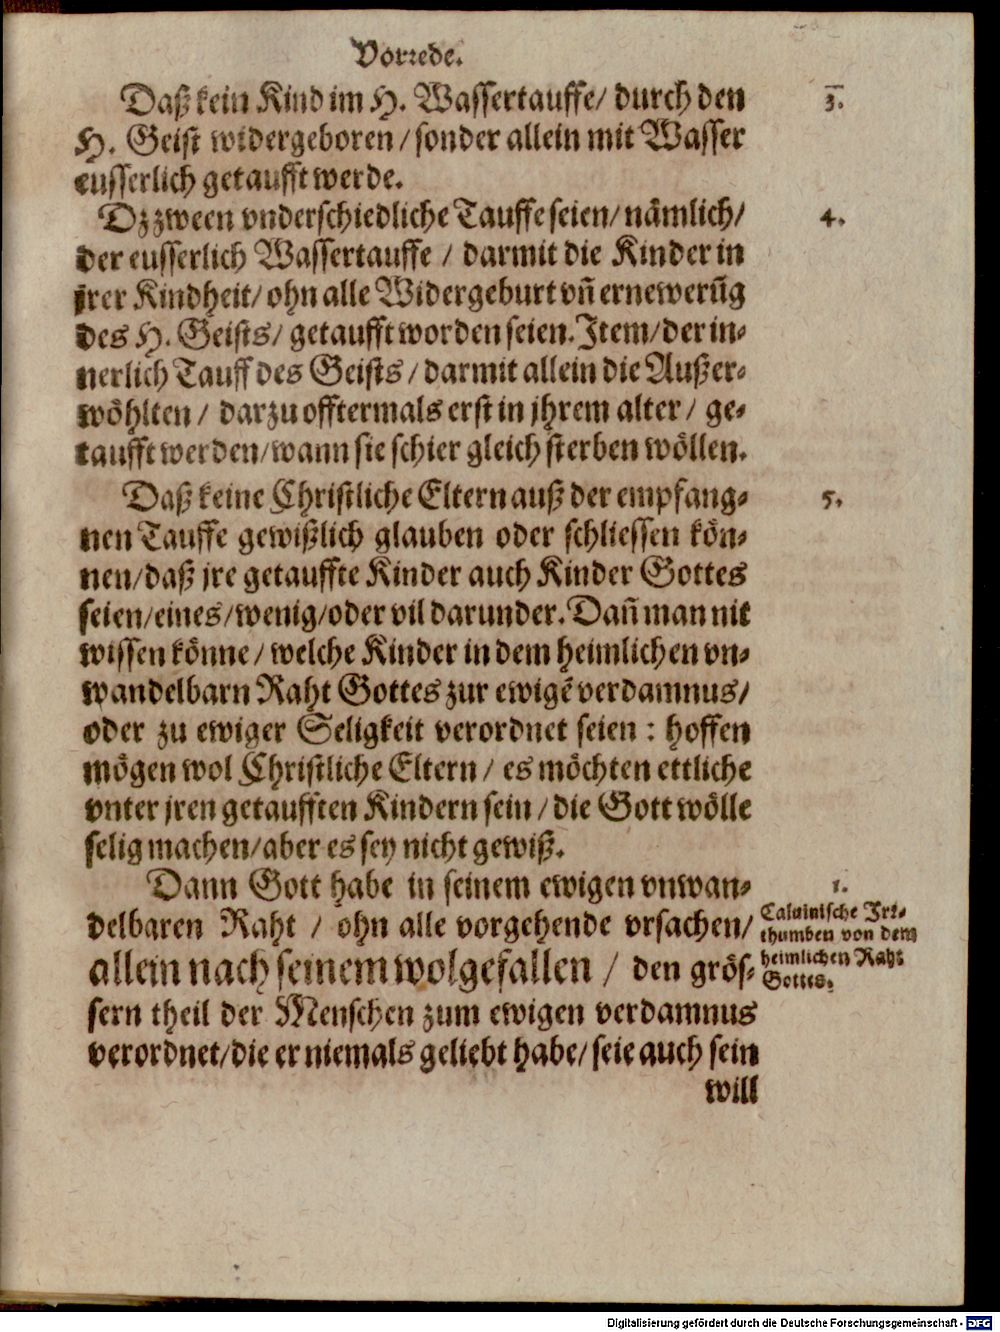 Vorrede.
Daß kein Kind im H. Wassertauffe/ durch den
3.
H. Geist widergeboren/ sonder allein mit Wasser
eusserlich getaufft werde.
Dz zween vnderschiedliche Tauffe seien/ nämlich/
4.
der eusserlich Wassertauffe / darmit die Kinder in
jrer Kindheit/ ohn alle Widergeburt vñ ernewerũg
des H. Geists/ getaufft worden seien. Item/ der in-
nerlich Tauff des Geists / darmit allein die Außer-
wöhlten / darzu offtermals erst in jhrem alter / ge-
taufft werden/ wann sie schier gleich sterben wöllen.
Daß keine Christliche Eltern auß der empfang-
5.
nen Tauffe gewißlich glauben oder schliessen kön-
nen/ daß jre getauffte Kinder auch Kinder Gottes
seien/ eines/ wenig/ oder vil darunder. Dañ man nit
wissen könne / welche Kinder in dem heimlichen vn-
wandelbarn Raht Gottes zur ewigẽ verdamnus/
oder zu ewiger Seligkeit verordnet seien : hoffen
mögen wol Christliche Eltern / es möchten ettliche
vnter jren getaufften Kindern sein / die Gott wölle
selig machen/ aber es sey nicht gewiß.
Dann Gott habe in seinem ewigen vnwan-
delbaren Raht / ohn alle vorgehende vrsachen/
allein nach seinem wolgefallen / den grös-
sern theil der Menschen zum ewigen verdamnus
verordnet/ die er niemals geliebt habe/ seie auch sein
will
1.
Calvinische Irr-
thumben von dem
heimlichen Raht
Gottes.
Digitalisierung gefördert durch die Deutsche Forschungsgemeinschaft - DFG